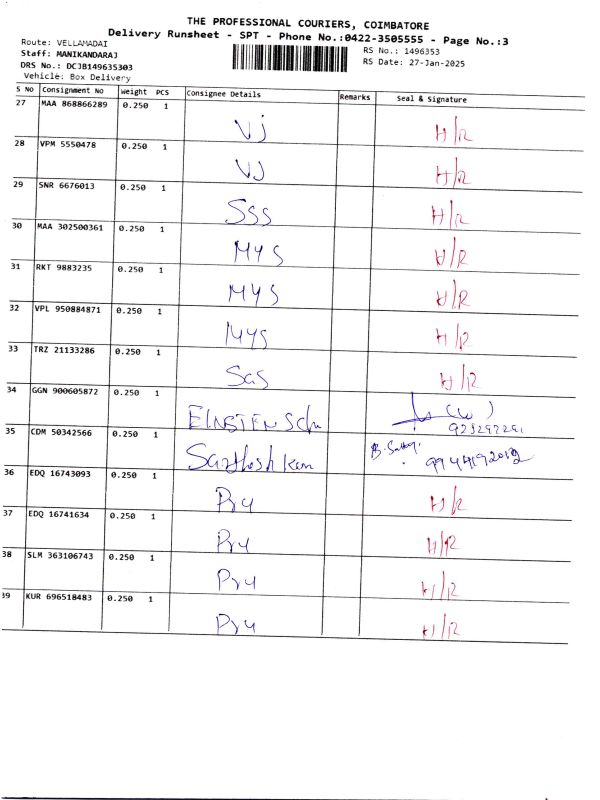 THE PROFESSIONAL COURIERS, COIMBATORE
Delivery Runsheet - SPT - Phone No.:0422-3505555 - Page No.:3
Route: VELLAMADAI
Staff: MANIKANDARAJ
DRS No.: DCJB149635303
Vehicle: Box Delivery
RS No.: 1496353
RS Date: 27-Jan-2025
S No Consignment No Weight PCS Consignee Details Remarks Seal & Signature
27 MAA 868866289 0.250 1 VJ H/R
28 VPM 5550478 0.250 1 VJ H/R
29 SNR 6676013 0.250 1 SSS H/R
30 MAA 302500361 0.250 1 MYS H/R
31 RKT 9883235 0.250 1 MYS H/R
32 VPL 950884871 0.250 1 MYS H/R
33 TRZ 21133286 0.250 1 Sas H/R
34 GGN 900605872 0.250 1
35 CDM 50342566 0.250 1
36 EDQ 16743093 0.250 1 Pry H/R
37 EDQ 16741634 0.250 1 Pry H/R
38 SLM 363106743 0.250 1 Pry H/R
39 KUR 696518483 0.250 1 Pry H/R